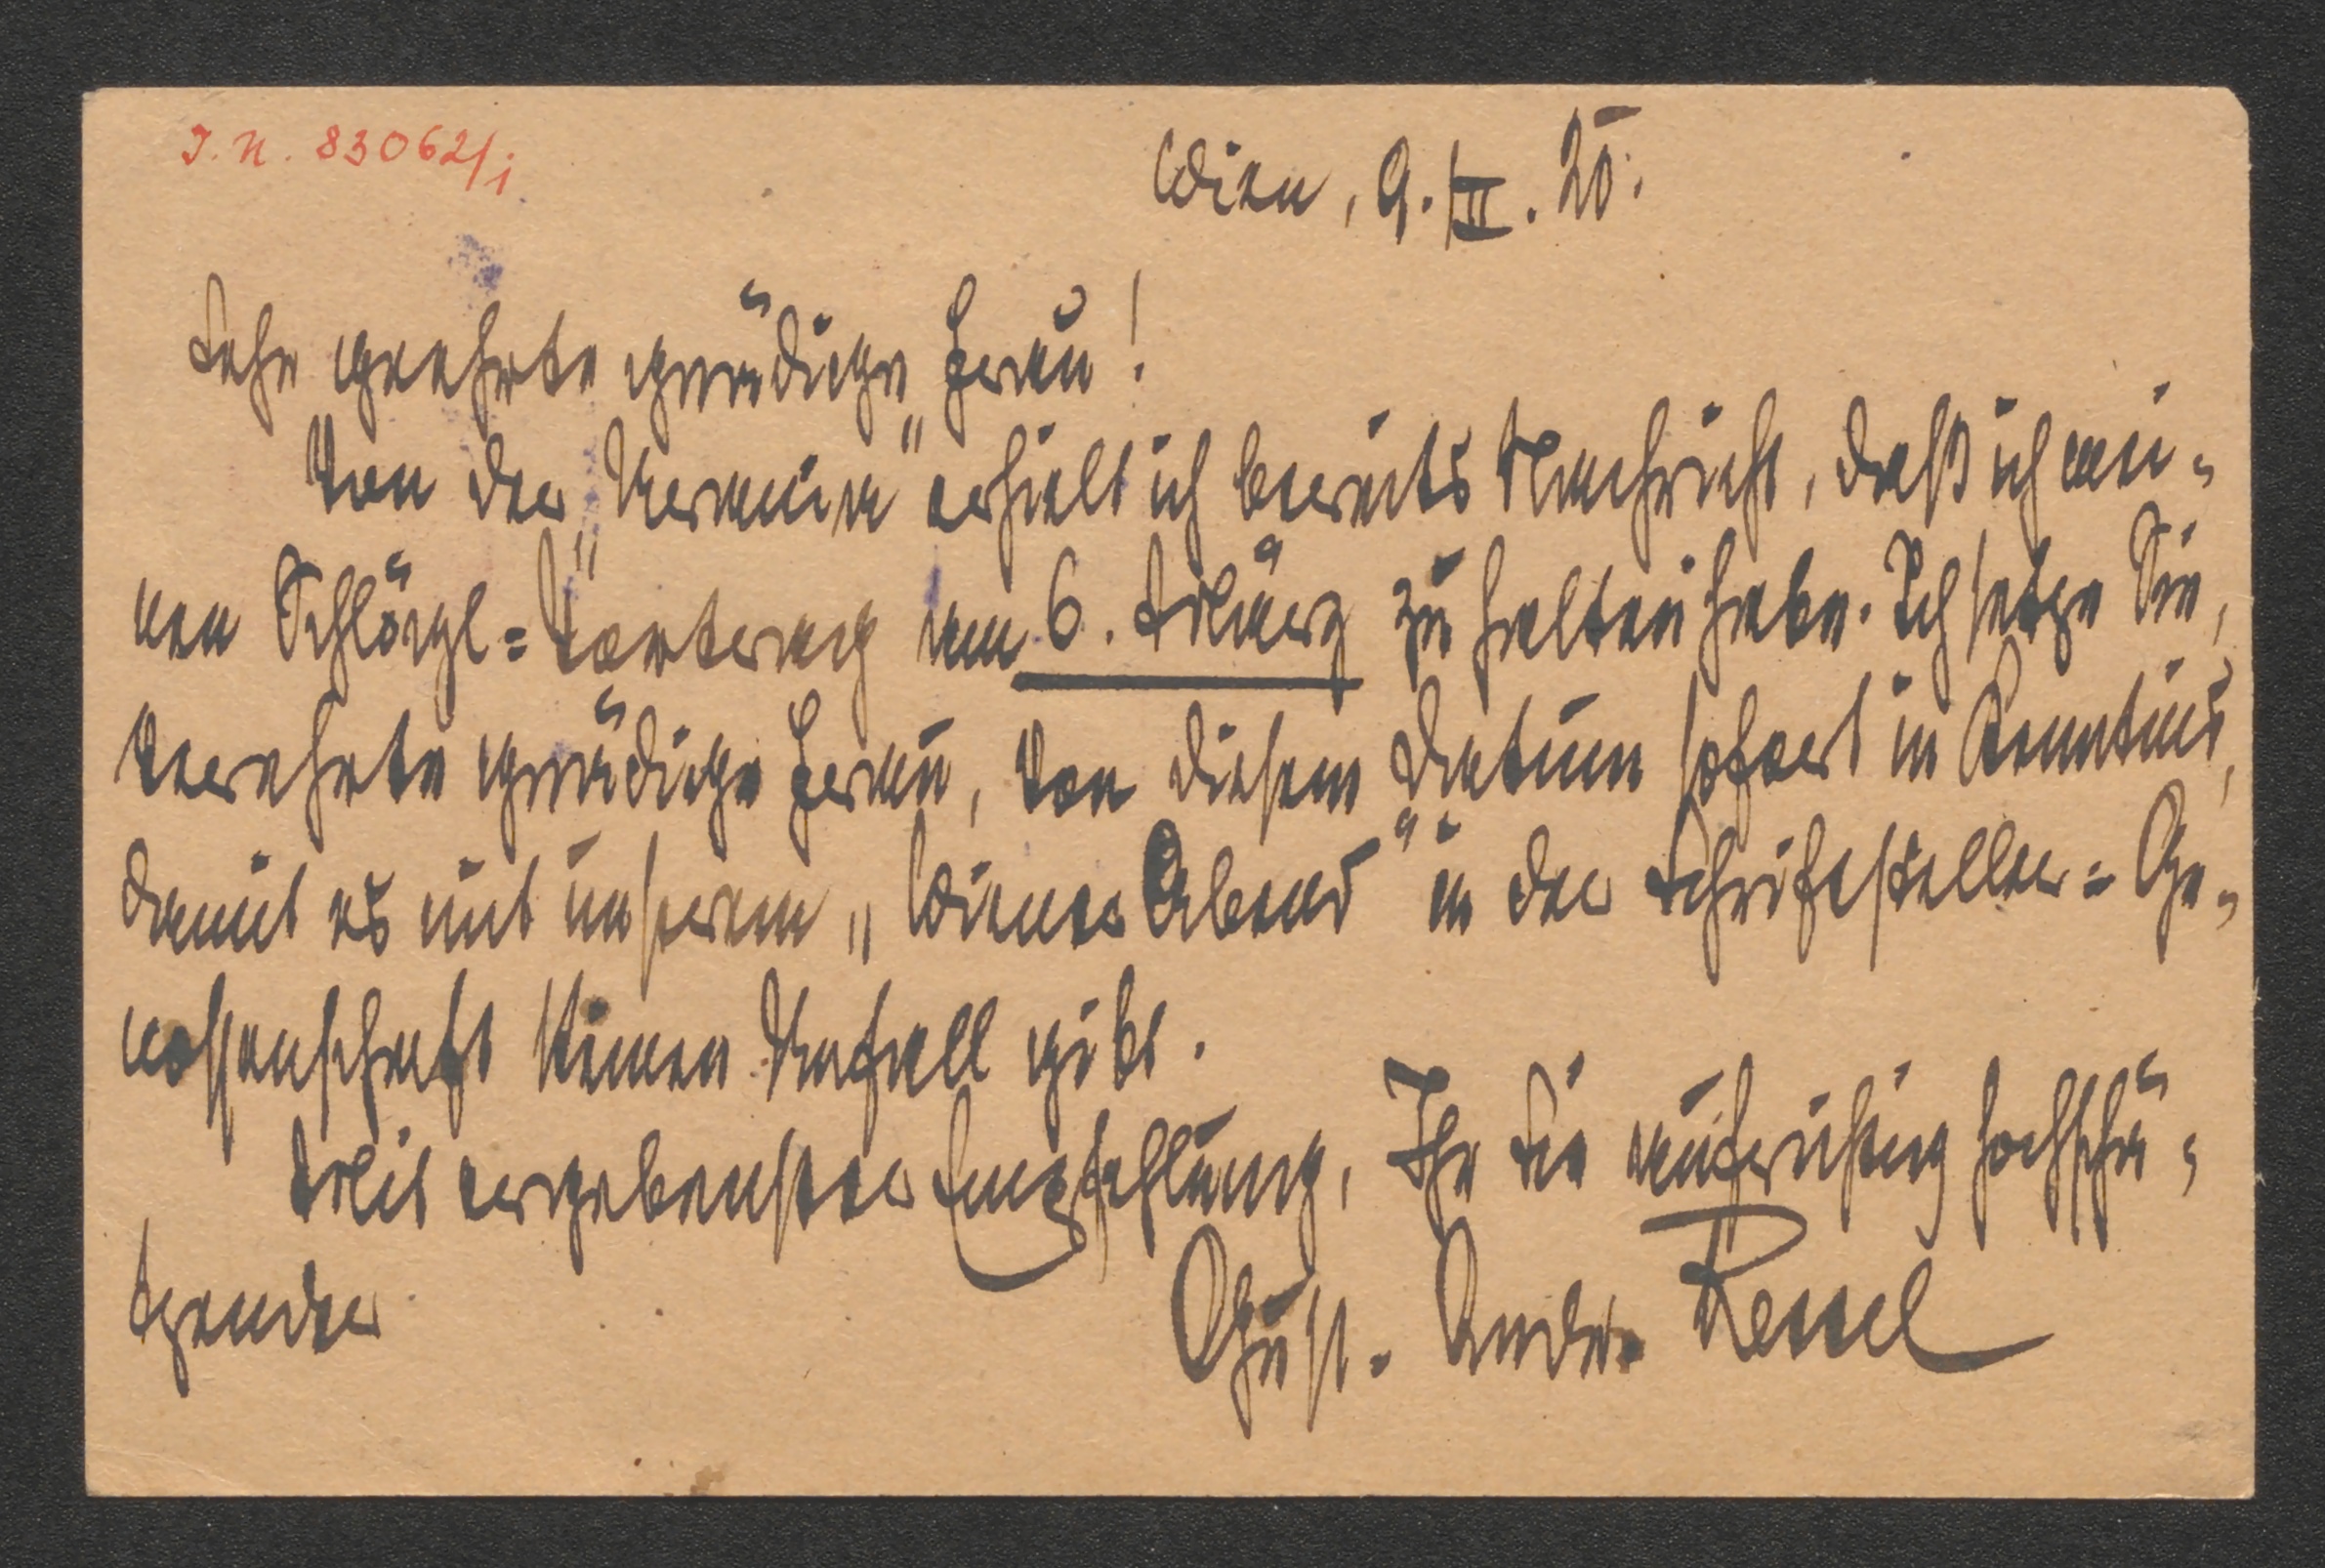 I. N. 83062/1
Wien, 9./II. 25.
Sehr geehrte gnädige Frau!
Von der „Urania" erhielt ich bereits Nachricht, daß ich mei-
nen Schlögl-Vortrag am 6. März zu halten habe. Ich setze Sie,
verehrte gnädige Frau, von diesem Datum sofort in Kenntnis,
damit es mit unserem „Wiener Abend" in der Schriftsteller-Ge-
nossenschaft keinen Unfall gibt.
Mit ergebenster Empfehlung, Ihr Sie aufrichtig hochschä-
tzender
Gust. Andr. Ressel